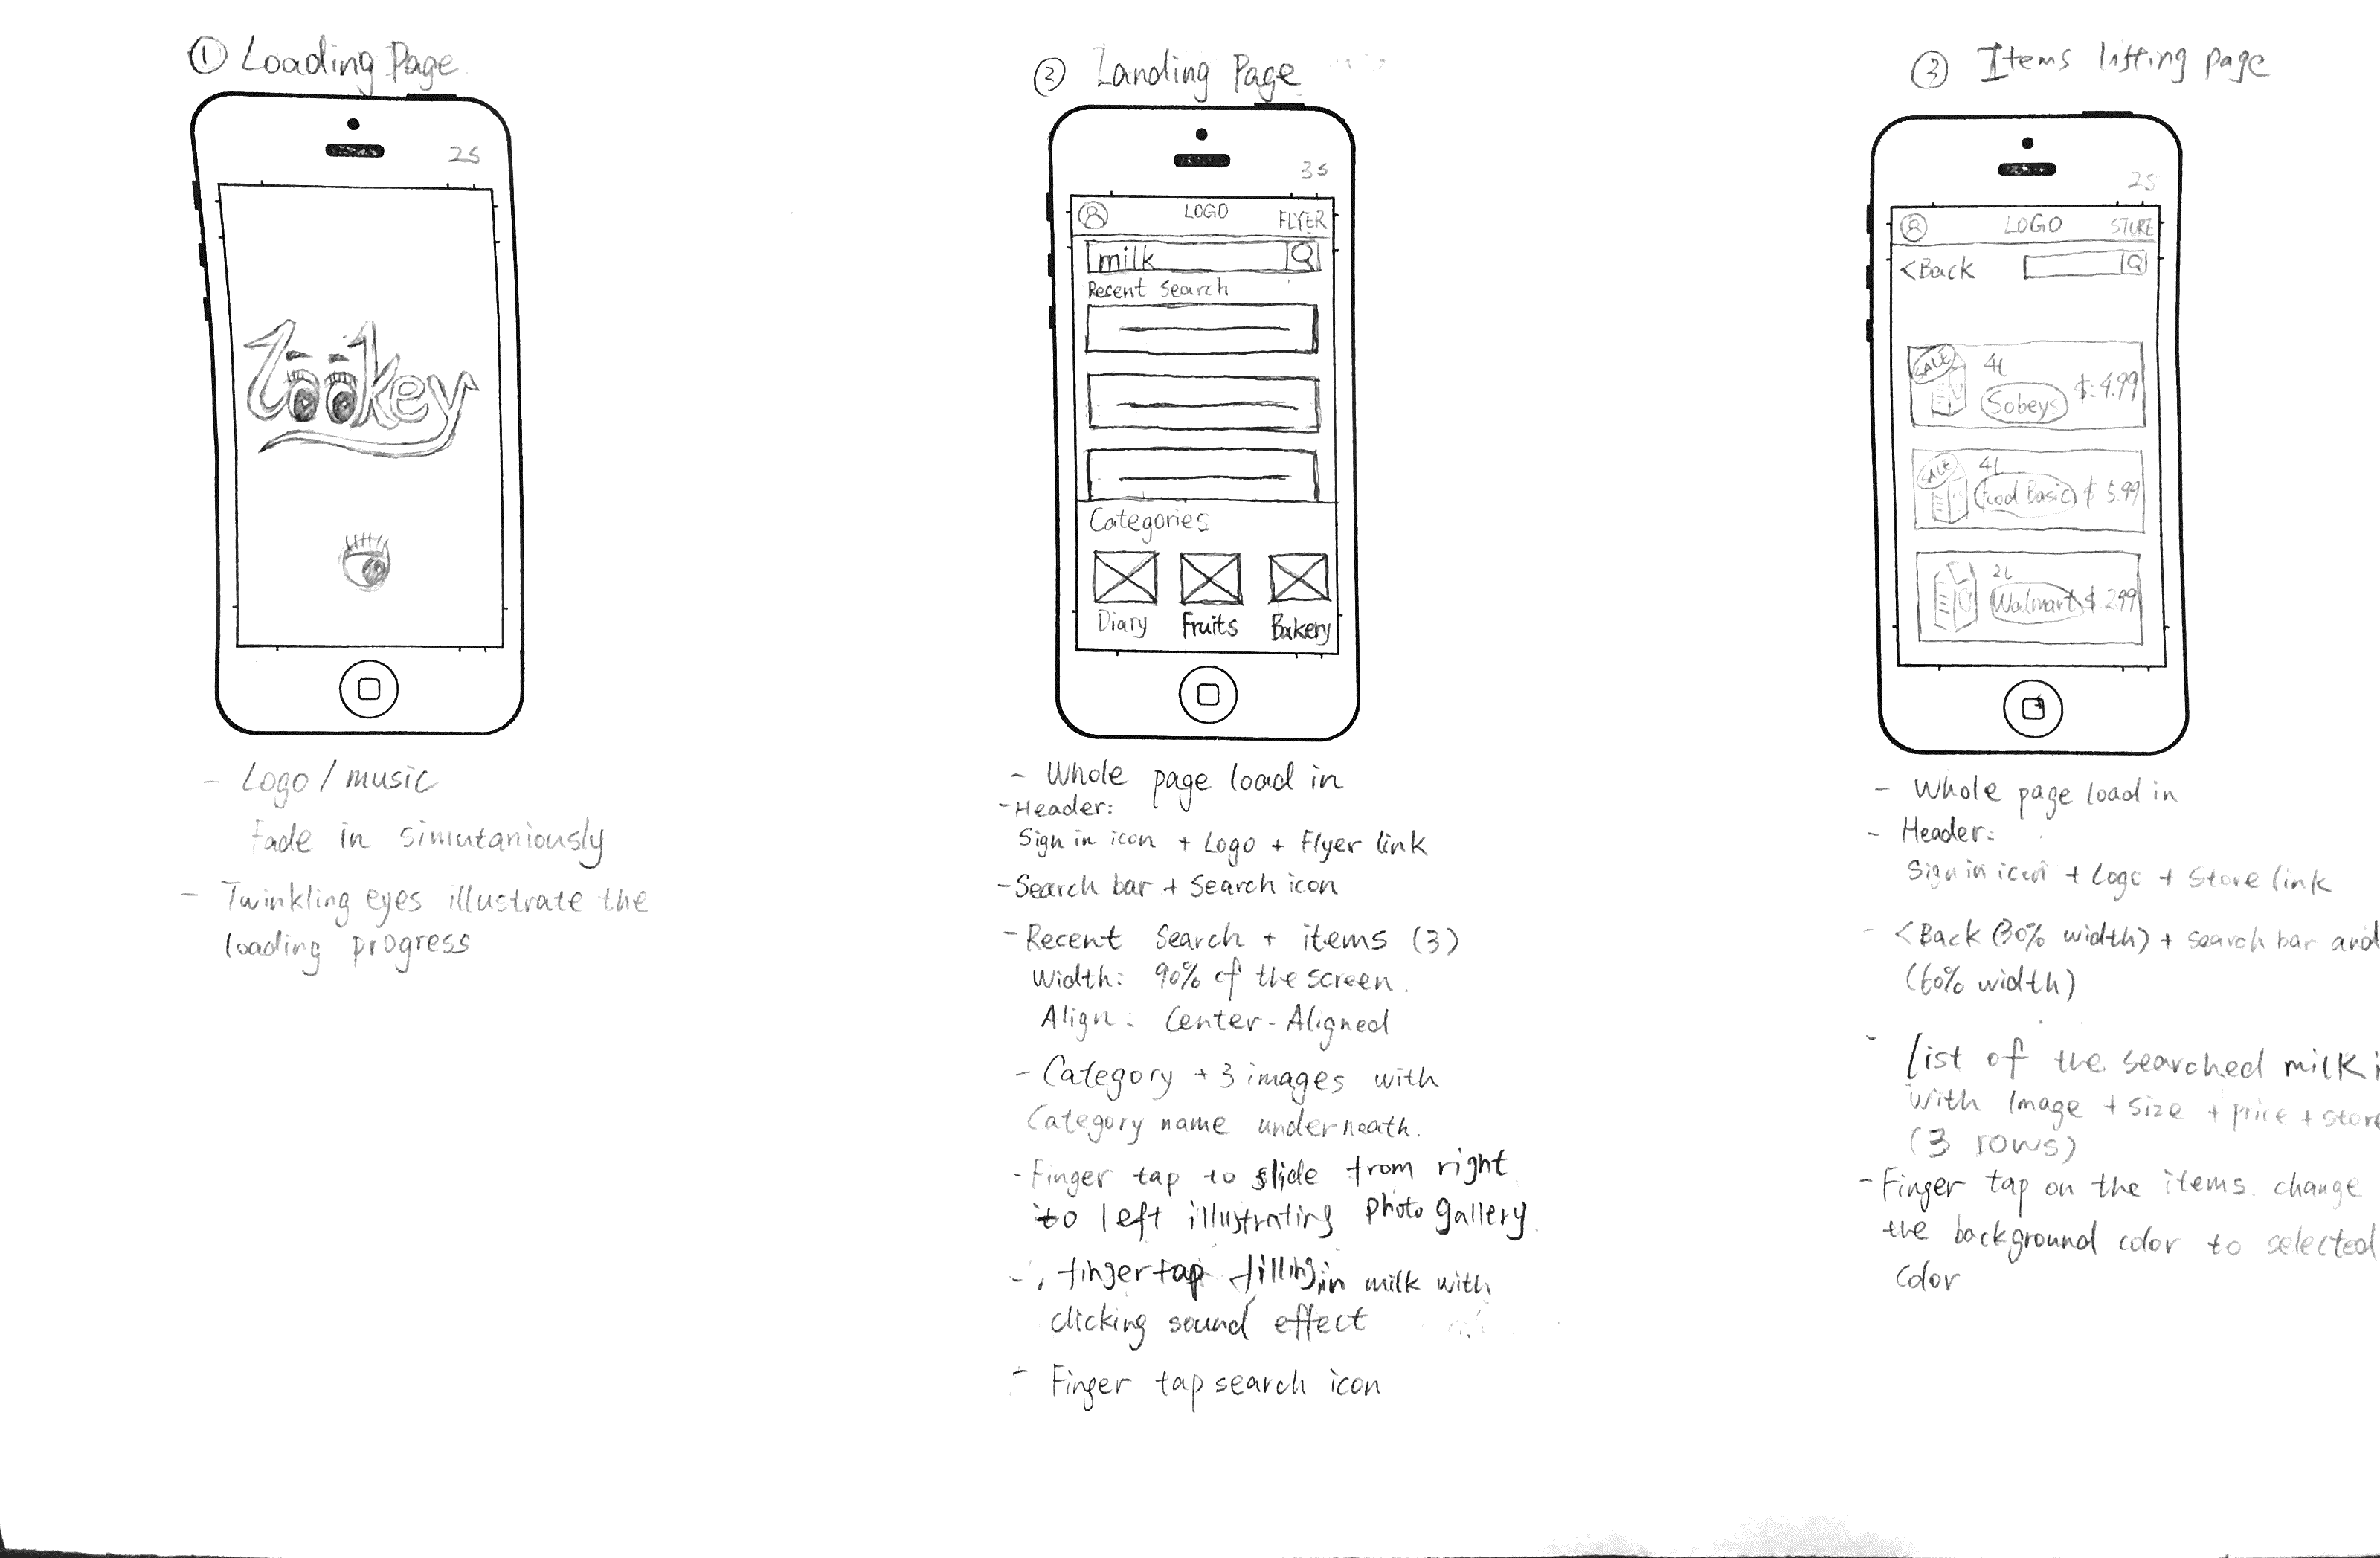 ① Loading Page
2S
Lookey
- Logo / music
Fade in simutaniously
- Twinkling eyes illustrate the
loading progress
② Landing Page
3S
LOGO FLYER
milk
Recent Search
Categories
Diary Fruits Bakery
- Whole page load in
- Header:
Sign in icon + Logo + Flyer link
- Search bar + Search icon
- Recent Search + items (3)
Width: 90% of the screen.
Align: Center-Aligned
- Category + 3 images with
Category name underneath.
- Finger tap to slide from right
to left illustrating photo gallery.
- finger tap filling in milk with
clicking sound effect
- Finger tap search icon
③ Items listing page
2S
LOGO STORE
<Back
SALE 4L
Sobeys $ 4.99
SALE 4L
Food Basic $ 5.99
2L
Walmart $ 2.99
- Whole page load in
- Header:
Sign in icon + Logo + Store link
- <Back (30% width) + search bar and
(60% width)
- List of the searched milk
with Image + size + price + store
(3 rows)
- Finger tap on the items. change
the background color to selected
color